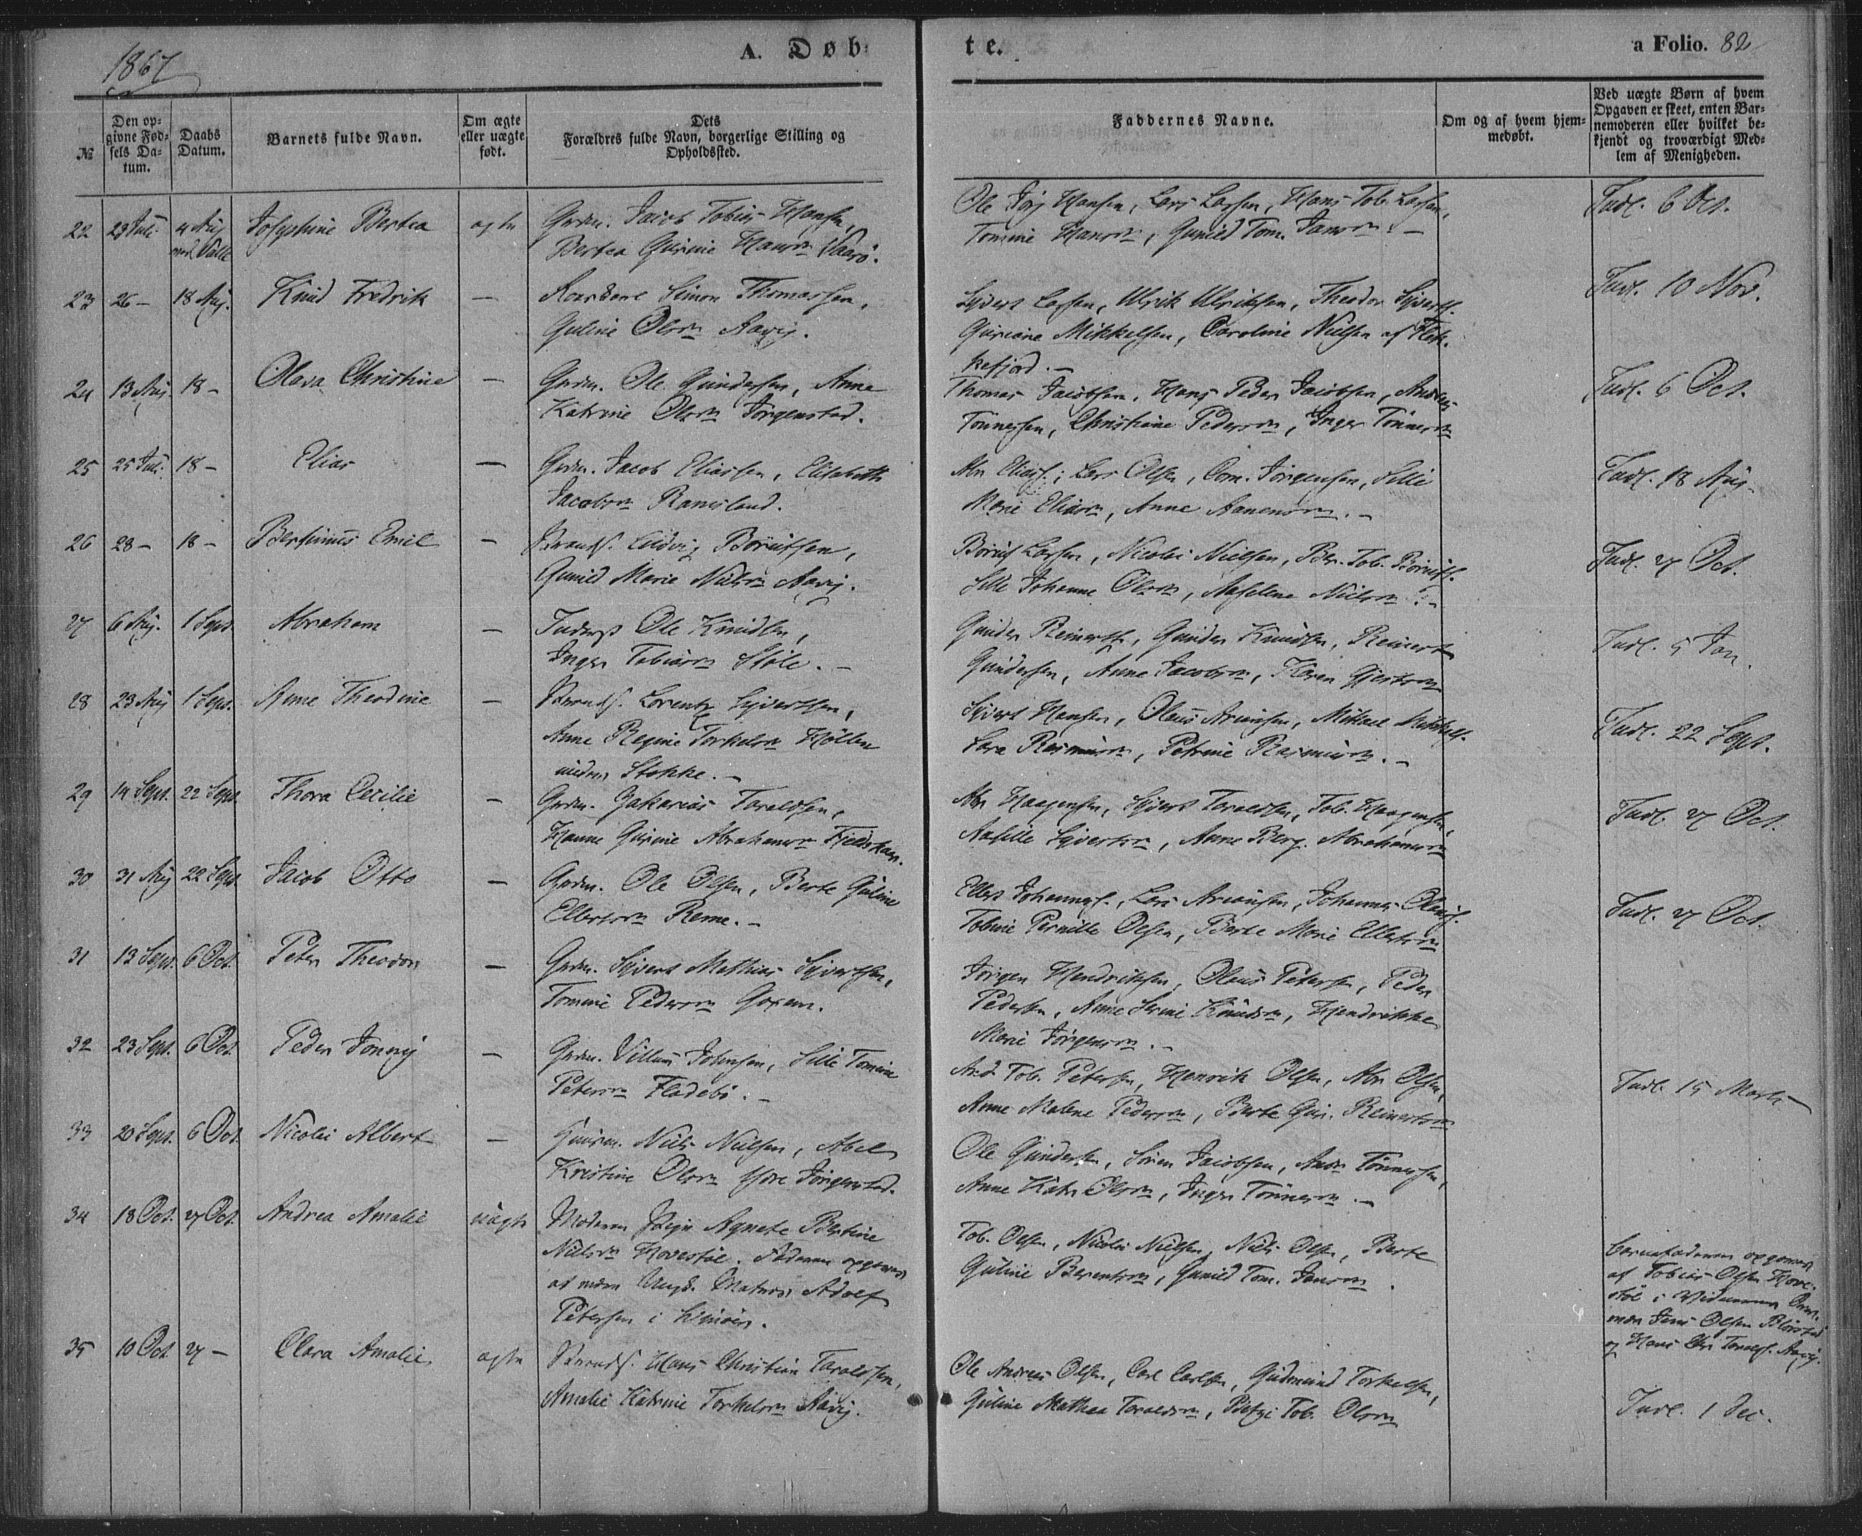 1867
A. Døb-
te.
a Folio. 82
№
Den op-
givne Fød-
sels Da-
tum.
Daabs
Datum.
Barnets fulde Navn.
Om ægte
eller uægte
født.
Dets
Forældres fulde Navn, borgerlige Stilling og
Opholdssted.
Faddernes Navne.
Om og af hvem hjem-
medøbt.
Ved uægte Børn af hvem
Opgaven er skeet, enten Bar-
nemoderen eller hvilket be-
kjendt og troværdigt Med-
lem af Menigheden.
22 29 Juli 4 Aug Josephine Bertea ægte Grdm. Jacob Tobias Hansen,
Bertea Gurine Hansdn
Ole Hansen, Lars Larsen, Hans Tob. Larsen,
Tomine Hansdn, Gunild Tom. Jansdn.–
Indl. 6 Oct.
23 26 – 18 Aug. Knud Fredrik — Simon Thomassen,
Guline Olsdn Aavig.
Syvert Larsen, Ulrik Ulriksen, Theodor Syverts.
Guriane Mikkelsen, Caroline Nielsen af Flek-
kefjord.–
Indl. 10 Nov.
24 13 Aug. 18 – Olava Christine — Grdm. Ole Gundersen, Anne
Katrine Olsdn Jørgenstad.
Thomas Jacobsen, Hans Peder Jacobsen, Andreas
Tønnessen, Christine Pedersdn, Inger Tønnesdn
Indl. 6 Oct.
25 25 Juli 18 – Elias — Grdm. Jacob Eliassen, Elisabeth
Jacobsdn Ramsland.
Abr. Eliass., Lars Olsen, Corn. Jørgensen, Sille
Marie Eliasdn, Anne Aanensdn.–
Indl. 18 Aug.
26 28 – 18 – Bertinius Emil — Strands. Ludvig Børuftsen,
Gunild Marie Nielsdn Aavig.
Børuf Larsen, Nicolai Nielsen, Ber. Tob. Børufs.
Sille Johanne Olsdn, Aaselene Nielsdn.–
Indl. 27 Oct.
27 6 Aug. 1 Sept. Abraham — Inderst Ole Knudsen,
Inger Tobiasdn Støle.–
Gunder Reinerts., Gunder Knudsen, Reinert
Gundersen, Anne Jacobsdn, Karen
Indl. 5 Jan.
28 23 Aug 1 Sept. Anne Theodine — Strands. Lorentz Syvertsen,
Anne Regine Torkelsdn Hølle
under Stokke.–
Syvert Hansen, Olaus Ariansen, Mikael Mikkels.
Sara Rasmusdn, Petrine Rasmusdn.–
Indl. 22 Sept.
29 14 Sept. 22 Sept. Thora Cecilie — Grdm. Zakarias Taraldsen,
Hanne Gurine Abrahamsdn Fjeldskaar.
Abr Haagensen, Syvert Taraldsen, Tob. Haagensen,
Aasille Syvertsdn, Anne Berg. Abrahamsdn
Indl. 27 Oct.
30 31 Aug 22 Sept. Jacob Otto — Grdm. Ole Olsen, Berte Guline
Ellertsdn Reme.–
Ellert Johannes., Lars Ariansen, Johannes
Tobine Pernille Olsen, Berte Marie Ellertsdn
Indl. 27 Oct.
31 13 Sept. 6 Oct. Peter Theodor — Grdm. Syvert Mathias Syvertsen,
Tomine Pedersdn
Jørgen Hendriksen, Olaus Petersen, Peder
Pedersen, Anne Serine Knudsdn, Hendrikke
Marie Jørgensdn.–
32 23 Sept. 6 Oct. Peder Jonny — Grdm. Villum Johnsen, Sille Tomine
Petersdn Fladebø.–
And. Tob. Petersen, Henrik Olsen, Abr. Olsen,
Anne Malene Pedersdn, Berte Gur. Reinertsdn
Indl. 15 Marts
33 20 Sept. 6 Oct. Nicolai Albert — Niels Nielsen, Abel
Kristine Olsdn Ydre Jørgenstad.
Ole Gundersen, Søren Jacobsen, Andr. Tønnessen,
Anne Katr. Olsdn, Inger Tønnesdn.–
34 18 Oct. 27 Oct. Andrea Amalie uægte Moderen Pige Agnete Bertine
Nielsdn Hovestøl. Faderen opgivet
at være Ungk. Matros Adolf
Petersen i
Tob. Olsen, Nicolai Nielsen, Niels Olsen, Berte
Guline Berentsdn, Gunild Tom. Jansdn.
Barnefaderen opgiven
af Tobias Olsen Hove-
støl i
Jens Olsen
og Hans Chr. Aavig.
35 10 Oct 27 – Clara Amalie ægte Strands. Hans Christian Taraldsen,
Amalie Katrine Torkelsdn Aavig.
Ole Andreas Olsen, Carl Carlsen, Gudmund Torkelsen,
Guline Mathea Taraldsdn, Tob. Olsdn
Indl. 1 Dec.